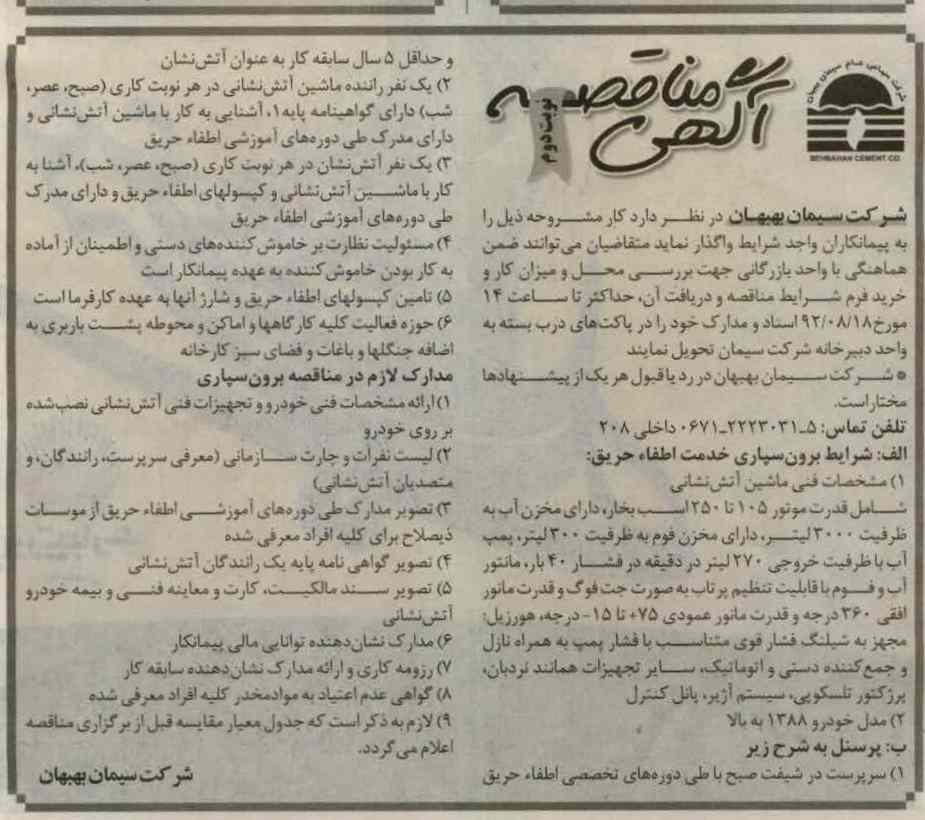 شرکت سهامی عام سیمان بهبهان
BEHBAHAN CEMENT CO.
آگهی مناقصه
نوبت دوم
شرکت سیمان بهبهان در نظر دارد کار مشروحه ذیل را
به پیمانکاران واجد شرایط واگذار نماید متقاضیان می‌توانند ضمن
هماهنگی با واحد بازرگانی جهت بررسی محل و میزان کار و
خرید فرم شرایط مناقصه و دریافت آن، حداکثر تا ساعت ۱۴
مورخ ۹۲/۰۸/۱۸ اسناد و مدارک خود را در پاکت‌های درب بسته به
واحد دبیرخانه شرکت سیمان تحویل نمایند
* شرکت سیمان بهبهان در رد یا قبول هر یک از پیشنهادها
مختار است.
تلفن تماس: ۵-۲۲۲۳۰۳۱-۰۶۷۱ داخلی ۲۰۸
الف: شرایط برون‌سپاری خدمت اطفاء حریق:
۱) مشخصات فنی ماشین آتش‌نشانی
شامل قدرت موتور ۱۰۵ تا ۲۵۰ اسب بخار، دارای مخزن آب به
ظرفیت ۳۰۰۰ لیتر، دارای مخزن فوم به ظرفیت ۳۰۰ لیتر، پمپ
آب با ظرفیت خروجی ۲۷۰ لیتر در دقیقه در فشار ۴۰ بار، مانتور
آب و فوم با قابلیت تنظیم پرتاب به صورت جت فوگ و قدرت مانور
افقی ۳۶۰ درجه و قدرت مانور عمودی ۷۵+ تا ۱۵- درجه، هورزیل:
مجهز به شیلنگ فشار قوی متناسب با فشار پمپ به همراه نازل
و جمع‌کننده دستی و اتوماتیک، سایر تجهیزات همانند نردبان،
پرژکتور تلسکوپی، سیستم آژیر، پانل کنترل
۲) مدل خودرو ۱۳۸۸ به بالا
ب: پرسنل به شرح زیر
۱) سرپرست در شیفت صبح با طی دوره‌های تخصصی اطفاء حریق
و حداقل ۵ سال سابقه کار به عنوان آتش‌نشان
۲) یک نفر راننده ماشین آتش‌نشانی در هر نوبت کاری (صبح، عصر،
شب) دارای گواهینامه پایه۱، آشنایی به کار با ماشین آتش‌نشانی و
دارای مدرک طی دوره‌های آموزشی اطفاء حریق
۳) یک نفر آتش‌نشان در هر نوبت کاری (صبح، عصر، شب)، آشنا به
کار با ماشین آتش‌نشانی و کپسولهای اطفاء حریق و دارای مدرک
طی دوره‌های آموزشی اطفاء حریق
۴) مسئولیت نظارت بر خاموش‌کننده‌های دستی و اطمینان از آماده
به کار بودن خاموش‌کننده به عهده پیمانکار است
۵) تامین کپسولهای اطفاء حریق و شارژ آنها به عهده کارفرما است
۶) حوزه فعالیت کلیه کارگاهها و اماکن و محوطه پشت باربری به
اضافه جنگلها و باغات و فضای سبز کارخانه
مدارک لازم در مناقصه برون‌سپاری
۱) ارائه مشخصات فنی خودرو و تجهیزات فنی آتش‌نشانی نصب‌شده
بر روی خودرو
۲) لیست نفرات و چارت سازمانی (معرفی سرپرست، رانندگان، و
متصدیان آتش‌نشانی)
۳) تصویر مدارک طی دوره‌های آموزشی اطفاء حریق از موسسات
ذیصلاح برای کلیه افراد معرفی شده
۴) تصویر گواهی نامه پایه یک رانندگان آتش‌نشانی
۵) تصویر سند مالکیت، کارت و معاینه فنی و بیمه خودرو
آتش‌نشانی
۶) مدارک نشان‌دهنده توانایی مالی پیمانکار
۷) رزومه کاری و ارائه مدارک نشان‌دهنده سابقه کار
۸) گواهی عدم اعتیاد به موادمخدر کلیه افراد معرفی شده
۹) لازم به ذکر است که جدول معیار مقایسه قبل از برگزاری مناقصه
اعلام می‌گردد.
شرکت سیمان بهبهان